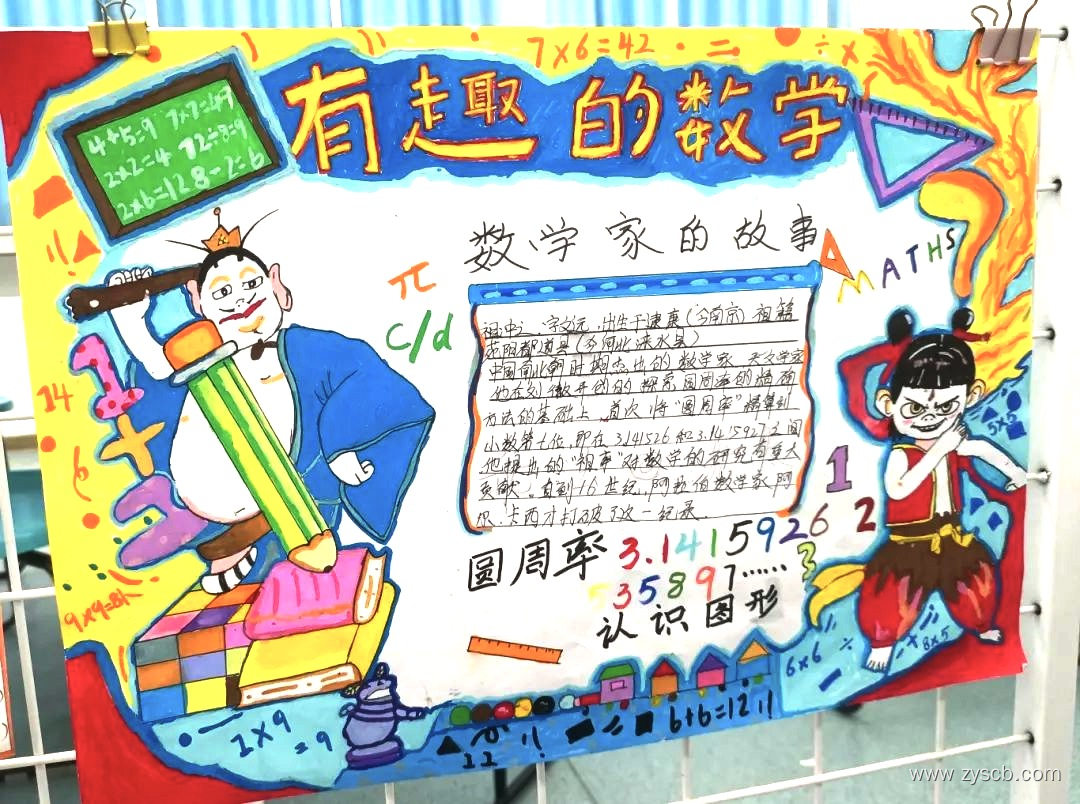 7×6=42
有趣的数学
4+5=9 7×7=49
2×2=4 72÷8=9
2×6=12 8-2=6
数学家的故事
MATHS
π
c/d
祖冲之,字文远,出生于建康(今南京)祖籍
范阳郡遒县(今河北涞水县)
中国南北朝时期杰出的数学家、天文学家
方法的基础上,首次将“圆周率”精算到
小数第七位,即在3.141526和3.1415927之间
他提出的“祖率”对数学的研究有重大
贡献。直到16世纪,阿拉伯数学家阿
尔.卡西才打破了这一纪录。
1+2
14
6
9×9=81
圆周率 3.1415926
535897……
认识图形
1
2
3
5×5
8×5
6×6
6+6=12!!
1×9
=9
www.zyscb.com